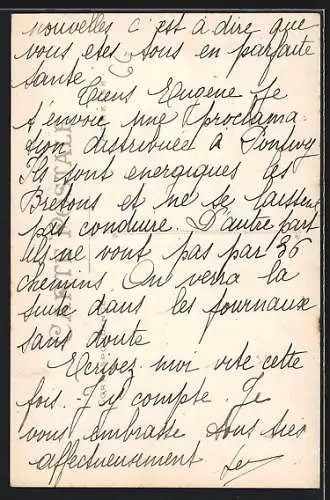 nouvelles c'est à dire que
vous etes tous en parfaite
santé
Tiens Eugène Je
t'envoie une proclama
tion distribuée à
Ils sont energiques les
Bretons et ne se laissent
pas conduire. D'autre part
ils ne vont pas par 36
chemins. On verra la
suite dans les journaux
sans doute
Ecrivez moi vite cette
fois. J'y compte. Je
vous embrasse tous très
affectueusement
CARTE POSTALE